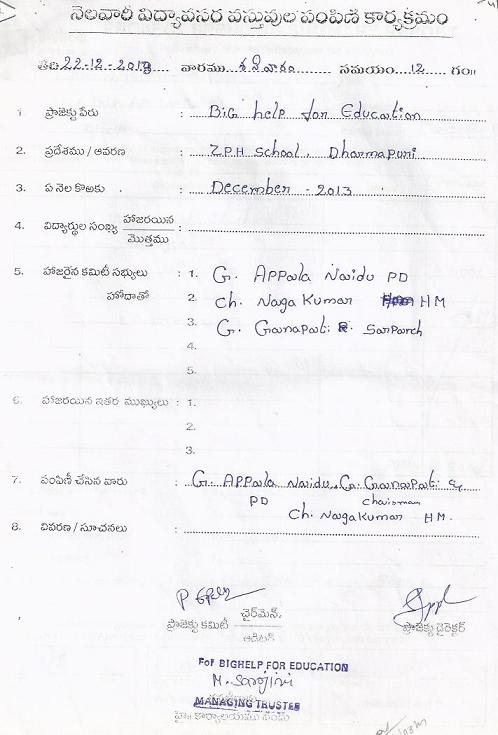 నెలవారీ విద్యావసర వస్తువుల పంపిణీ కార్యక్రమం
తేది 22-12-2013 వారము శనివారం సమయం 12 గం॥
1 ప్రాజెక్టు పేరు : Big help for Education
2. ప్రదేశము / ఆవరణ : Z.P.H School, Dharmapuri
3. ఏ నెల కొఱకు : December - 2013
4. విద్యార్థుల సంఖ్య హాజరయిన :
మొత్తము
5. హాజరైన కమిటీ సభ్యులు : 1. G. APPala Naidu PD
హోదాతో 2. Ch. Naga Kumar HM
3. G. Ganapati Sarparch
4.
5.
6. హాజరయిన ఇతర ముఖ్యులు : 1.
2.
3.
7. పంపిణీ చేసిన వారు : G. APPala Naidu, G. Ganapati &
PD chairman
Ch. Nagakumar HM.
8. వివరణ / సూచనలు :
ఛైర్‌మెన్.
ప్రాజెక్టు కమిటీ ప్రాజెక్టు డైరెక్టర్
ఆడిటర్
For BIGHELP FOR EDUCATION
M. Sarojini
MANAGING TRUSTEE